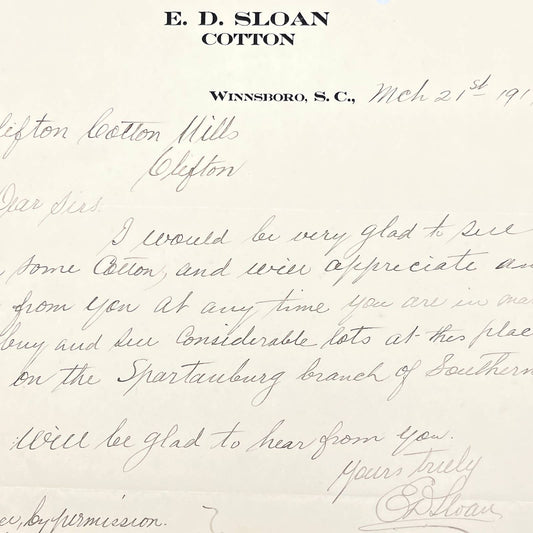 E. D. SLOAN
COTTON
WINNSBORO, S. C., Mch 21st 191
lifton Cotton Mills
Clifton
Dear Sirs.
I would be very glad to sell
some Cotton, and will appreciate an
from you at any time you are in mar
buy and sell considerable lots at this plac
on the Spartanburg branch of Southern
Will be glad to hear from you.
Yours truly
E D Sloan
by permission.